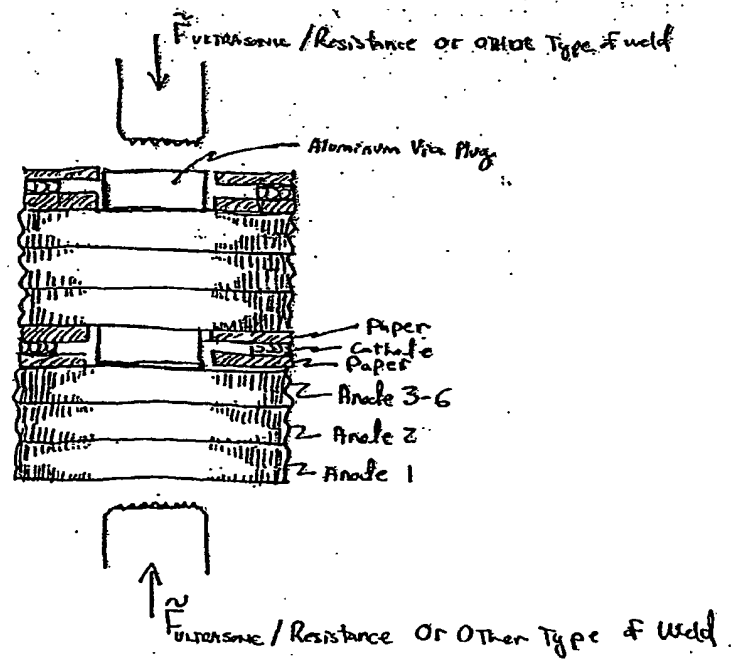 F̃ULTRASONIC / Resistance or other Type of weld
Aluminum Via Plug
Paper
Cathode
Paper
Anode 3-6
Anode 2
Anode 1
F̃ULTRASONIC / Resistance Or OTher Type of Weld